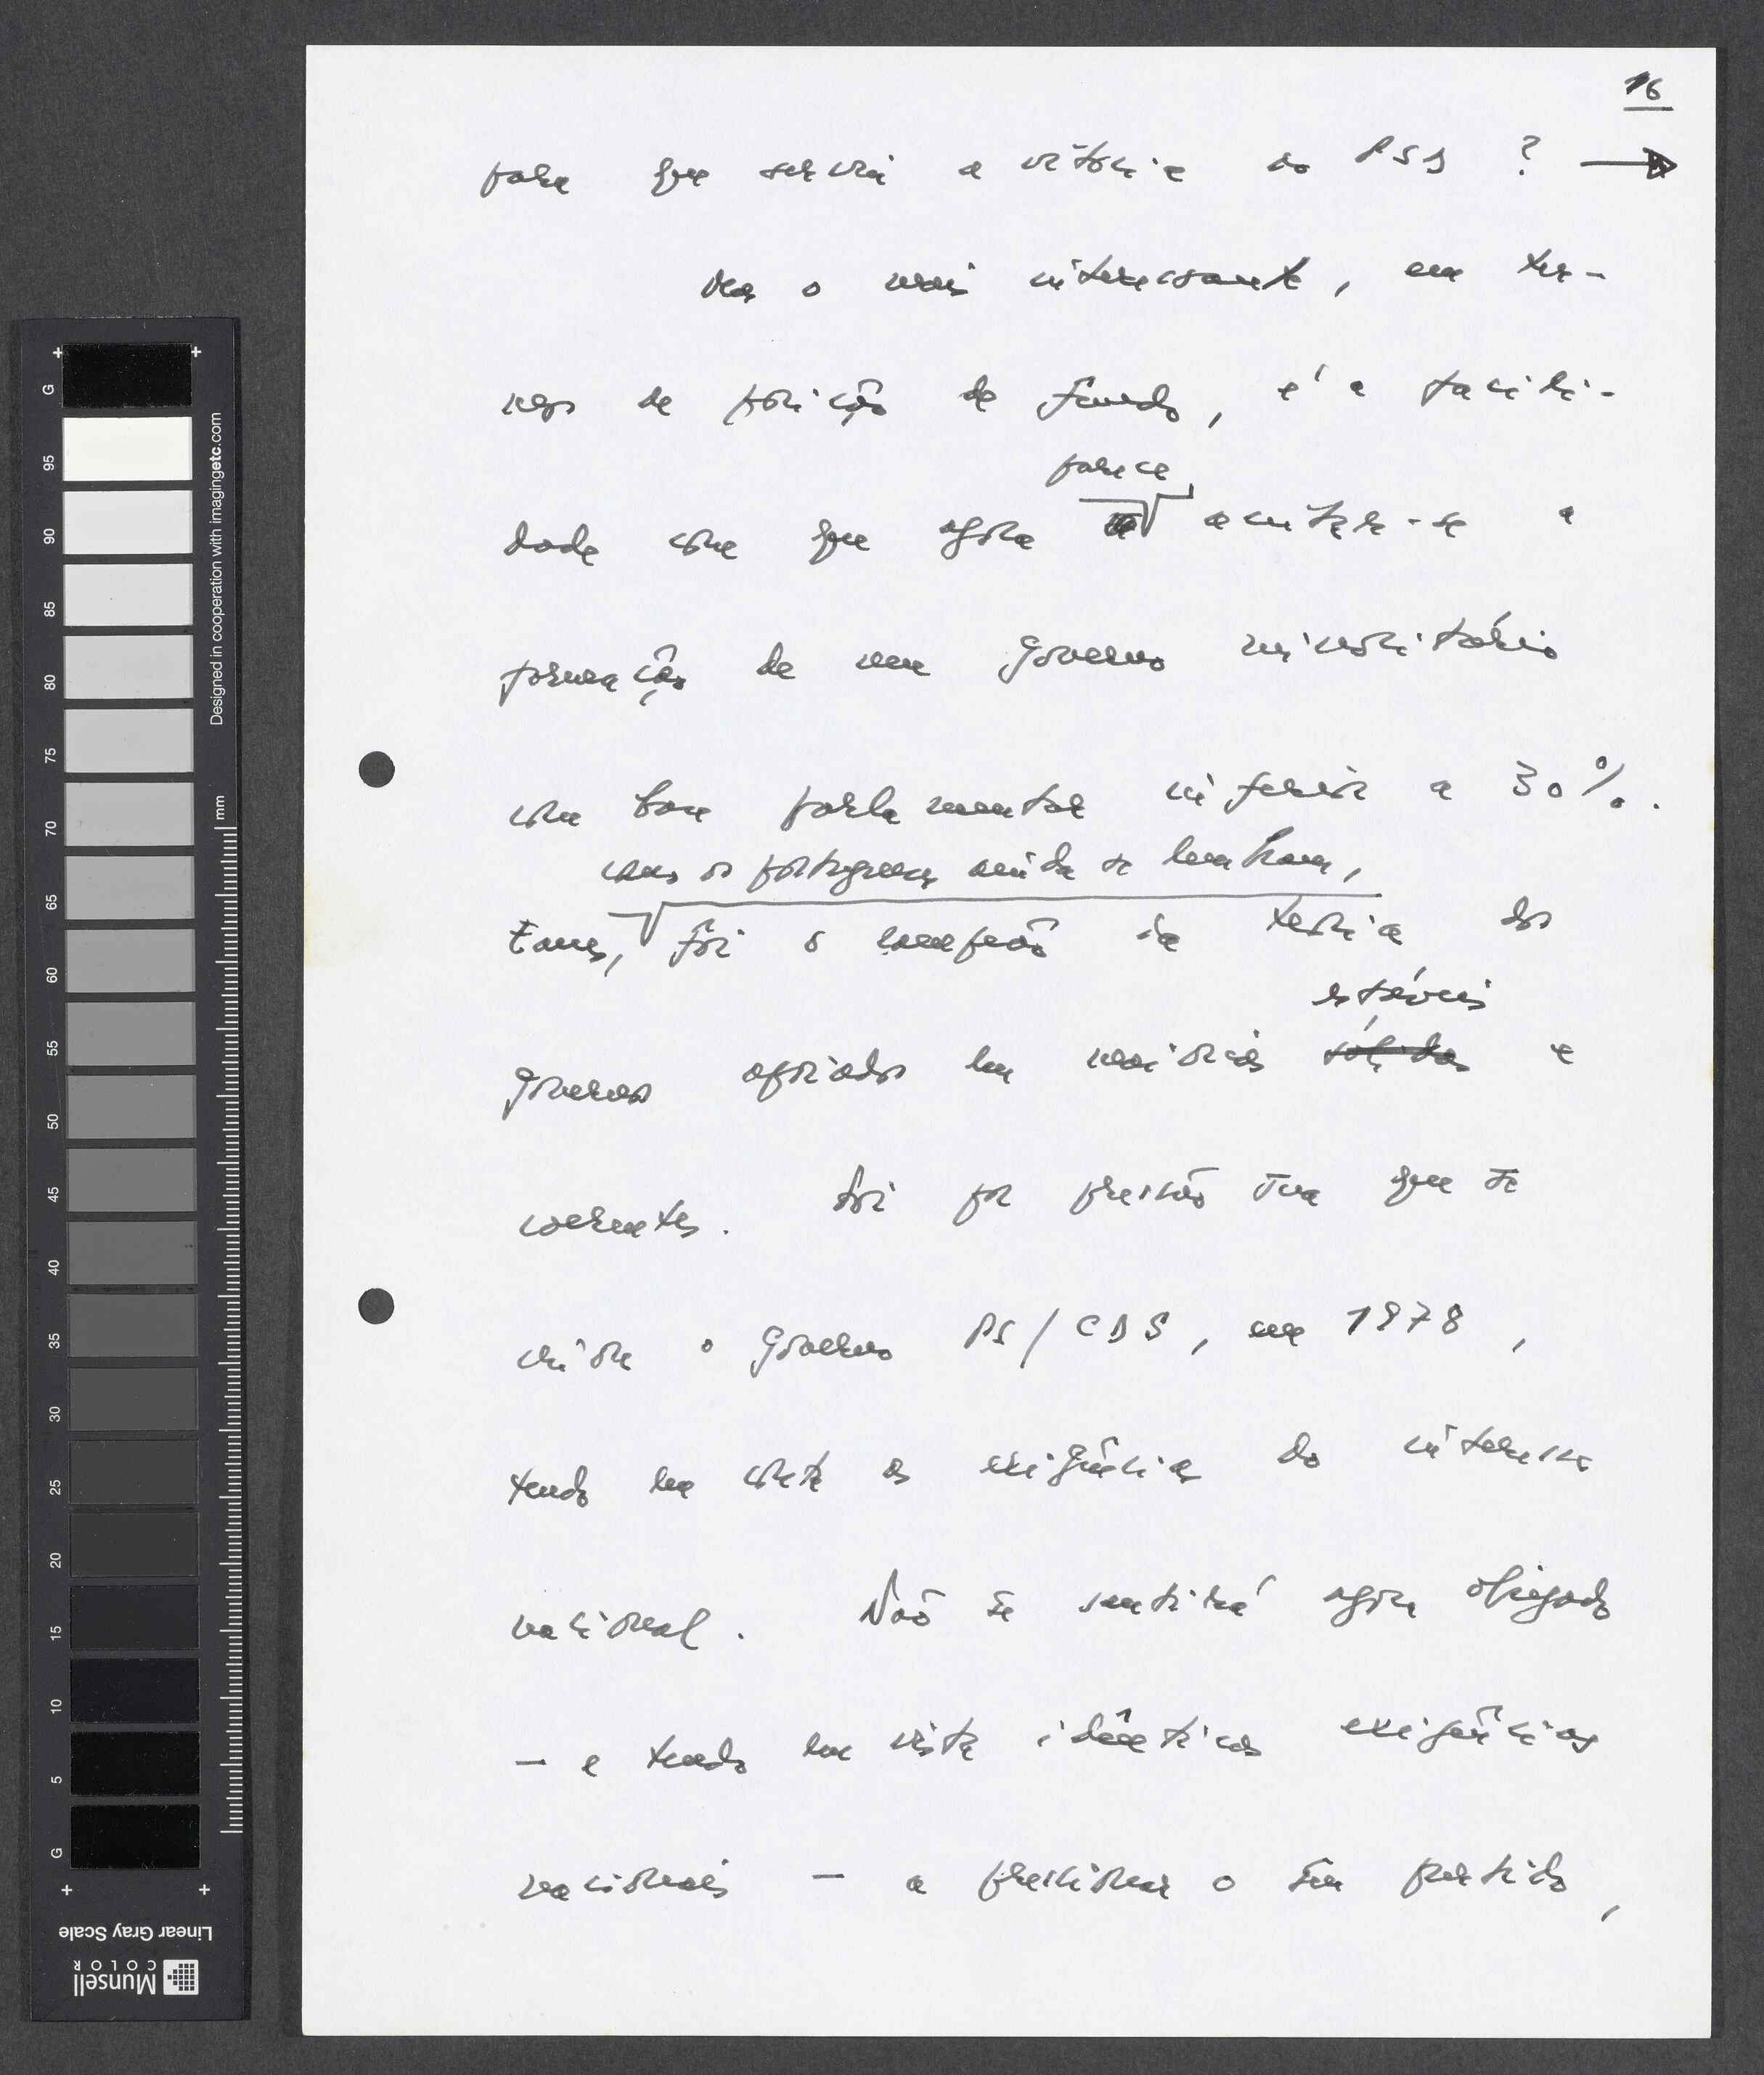 16
para que serviu a vitória do PSD ?
Mas o mais interessante, em ter-
mos de posição de fundo, é a facili-
dade com que agora parece admitir-se a
formação de um Governo minoritário
com base parlamentar inferior a 30%.
como os portugueses ainda se lembram,
Eanes, foi o campeão da teoria dos
estáveis
governos apoiados em maiorias sólidas e
coerentes. Foi por pressão sua que se
criou o Governo PS/CDS, em 1978,
tendo em conta as exigências do interesse
nacional. Não se sentirá agora obrigado
— e tendo em vista idênticas exigências
nacionais — a pressionar o seu partido,
G
95
90
85
80
75
70
65
60
55
50
45
40
35
30
25
20
15
10
5
G
mm
Designed in cooperation with imagingetc.com
Linear Gray Scale
Munsell
COLOR